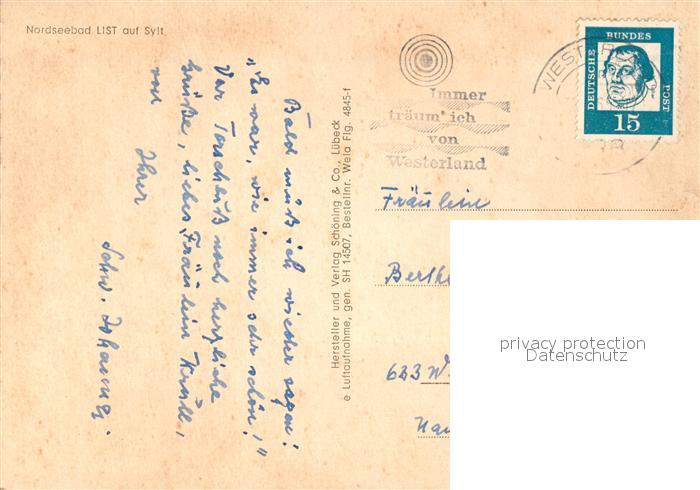 Nordseebad LIST auf Sylt
Bald muß ich wieder sagen:
„Es war, wie immer sehr schön!"
Vor Torschluß noch herzliche
Grüße, liebes Fräulein
von
Ihrer
Schw.
Hersteller und Verlag Schöning & Co., Lübeck
e Luftaufnahme, gen. SH 14507, Bestellnr. Wela Flg. 4845-f
Immer
träum' ich
von
Westerland
DEUTSCHE
BUNDES
POST
15
Fräulein
623 W
privacy protection
Datenschutz